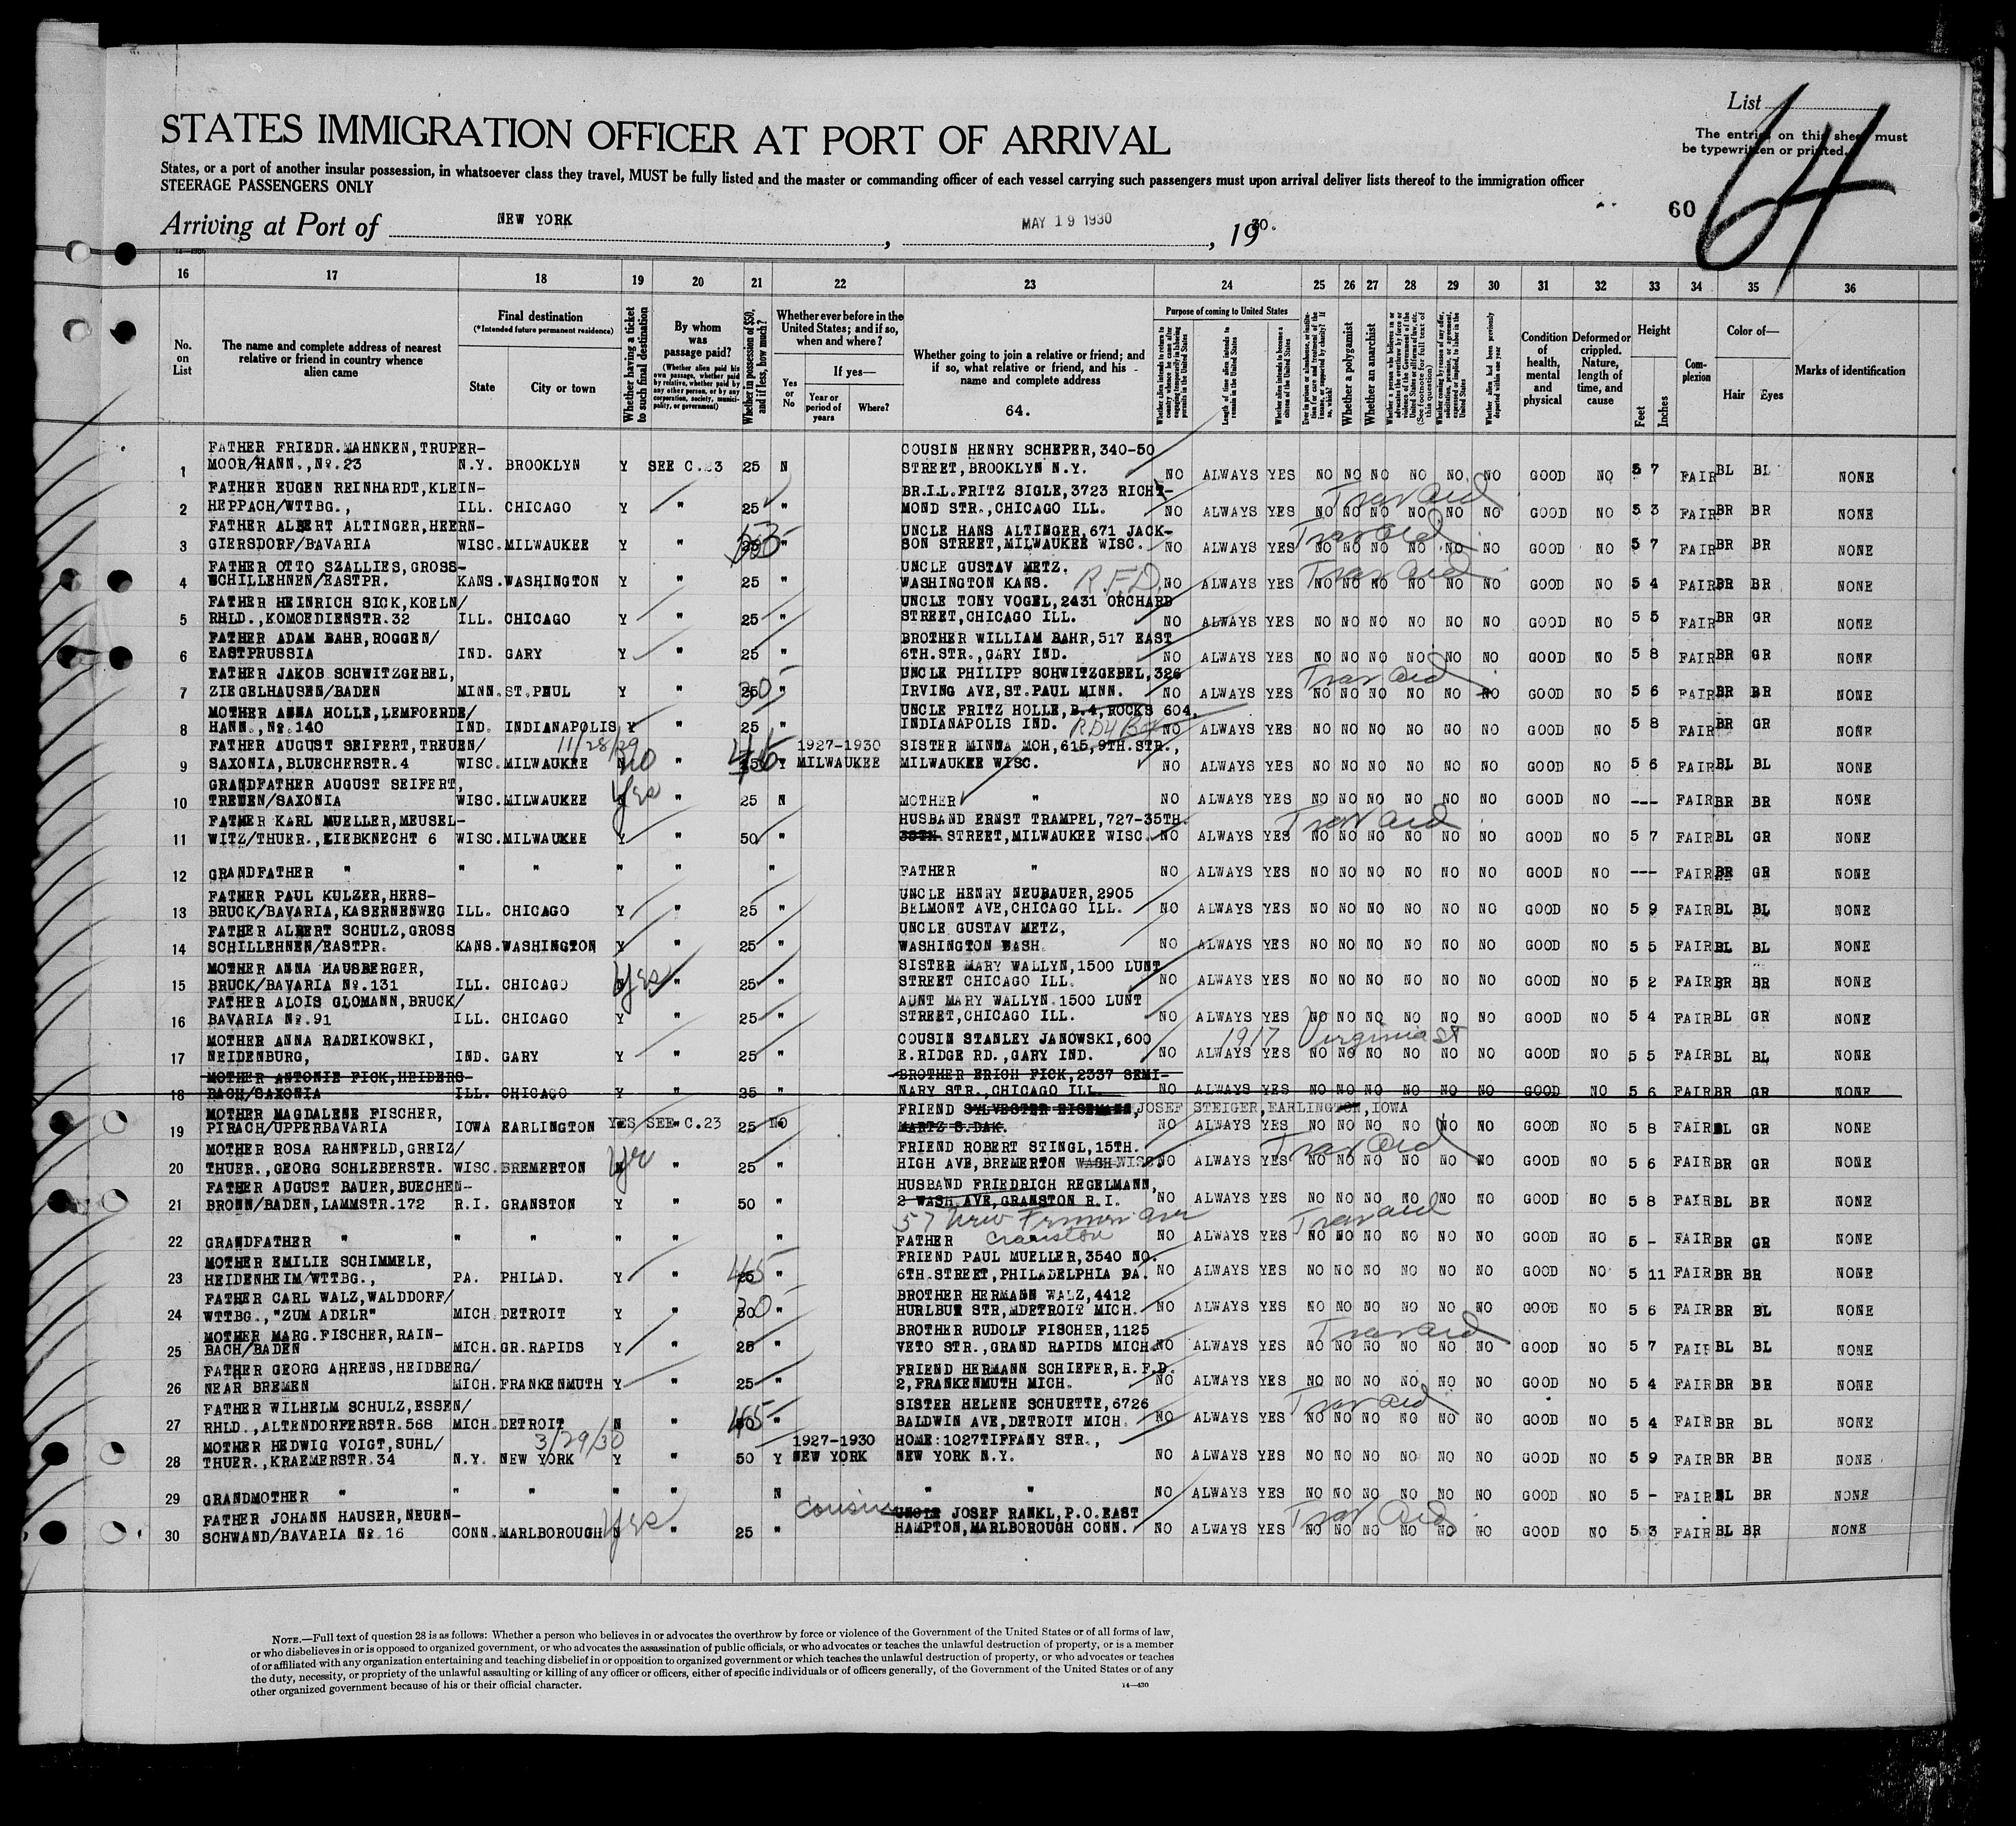 List
64
The entries on this sheet must
be typewritten or printed.
STATES IMMIGRATION OFFICER AT PORT OF ARRIVAL
States, or a port of another insular possession, in whatsoever class they travel, MUST be fully listed and the master or commanding officer of each vessel carrying such passengers must upon arrival deliver lists thereof to the immigration officer
STEERAGE PASSENGERS ONLY
60
Arriving at Port of NEW YORK , MAY 19 1930 , 1930.
16 17 18 19 20 21 22 23 24 25 26 27 28 29 30 31 32 33 34 35 36
No. on List
The name and complete address of nearest relative or friend in country whence alien came
Final destination
(*Intended future permanent residence)
State
City or town
Whether having a ticket to such final destination
By whom was passage paid?
(Whether alien paid his own passage, whether paid by relative, whether paid by any other person, or by any corporation, society, municipality, or government)
Whether in possession of $50, and if less, how much?
Whether ever before in the United States; and if so, when and where?
Yes or No
If yes—
Year or period of years
Where?
Whether going to join a relative or friend; and if so, what relative or friend, and his name and complete address
64.
Purpose of coming to United States
Length of time alien intends to remain in the United States
Whether alien intends to become a citizen of the United States
Whether a polygamist
Whether an anarchist
Condition of health, mental and physical
Deformed or crippled. Nature, length of time, and cause
Height
Feet
Inches
Complexion
Color of—
Hair
Eyes
Marks of identification
FATHER FRIEDR.MAHNKEN,TRUPER- COUSIN HENRY SCHEPER,340-50
1 MOOR/HANN.,No.23 N.Y. BROOKLYN Y SEE C.23 25 N STREET,BROOKLYN N.Y. NO ALWAYS YES NO NO NO NO NO NO GOOD NO 5 7 FAIR BL BL NONE
FATHER EUGEN REINHARDT,KLEIN- BR.I.L.FRITZ SIGLE,3723 RICHT- Trav aid
2 HEPPACH/WTTBG., ILL. CHICAGO Y " 25 " MOND STR.,CHICAGO ILL. NO ALWAYS YES NO NO NO NO NO NO GOOD NO 5 3 FAIR BR BR NONE
FATHER ALBERT ALTINGER,HEERN- UNCLE HANS ALTINGER,671 JACK- Trav aid
3 GIERSDORF/BAVARIA WISC. MILWAUKEE Y " 25 " SON STREET,MILWAUKEE WISC. NO ALWAYS YES NO NO NO NO NO NO GOOD NO 5 7 FAIR BR BR NONE
FATHER OTTO SZALLIES,GROSS- UNCLE GUSTAV METZ. Trav aid
4 SCHILLEHNEN/EASTPR. KANS. WASHINGTON Y " 25 " WASHINGTON KANS. R.F.D. NO ALWAYS YES NO NO NO NO NO NO GOOD NO 5 4 FAIR BR BR NONE
FATHER HEINRICH SICK,KOELN/ UNCLE TONY VOGEL,2431 ORCHARD
5 RHLD.,KOMOEDIENSTR.32 ILL. CHICAGO Y " 25 " STREET,CHICAGO ILL. NO ALWAYS YES NO NO NO NO NO NO GOOD NO 5 5 FAIR BR GR NONE
FATHER ADAM BAHR,ROGGEN/ BROTHER WILLIAM BAHR,517 EAST
6 EASTPRUSSIA IND. GARY Y " 25 " 6TH.STR.,GARY IND. NO ALWAYS YES NO NO NO NO NO NO GOOD NO 5 8 FAIR BR GR NONE
FATHER JAKOB SCHWITZGEBEL, 30 UNCLE PHILIPP SCHWITZGEBEL,326 Trav aid
7 ZIEGELHAUSEN/BADEN MINN. ST.PHUL Y " 25 " IRVING AVE,ST.PAUL MINN. NO ALWAYS YES NO NO NO NO NO NO GOOD NO 5 6 FAIR BR BR NONE
MOTHER ANNA HOLLE,LEMFOERDE/ UNCLE FRITZ HOLLE,B.4,ROCKS 604,
8 HANN.,No.140 IND. INDIANAPOLIS Y " 25 " INDIANAPOLIS IND. NO ALWAYS YES NO NO NO NO NO NO GOOD NO 5 8 FAIR BR GR NONE
FATHER AUGUST SEIFERT,TREUEN/ 11/28/29 1927-1930 SISTER MINNA MOH,615,9TH.STR.,
9 SAXONIA,BLUECHERSTR.4 WISC. MILWAUKEE No " 25 Y MILWAUKEE MILWAUKEE WISC. NO ALWAYS YES NO NO NO NO NO NO GOOD NO 5 6 FAIR BL BL NONE
GRANDFATHER AUGUST SEIFERT,
10 TREUEN/SAXONIA WISC. MILWAUKEE Yes " 25 N MOTHER " NO ALWAYS YES NO NO NO NO NO NO GOOD NO --- FAIR BR BR NONE
FATHER KARL MUELLER,MEUSEL- HUSBAND ERNST TRAMPEL,727-35TH. Trav aid
11 WITZ/THUER.,LIEBKNECHT 6 WISC. MILWAUKEE Y " 50 " 35TH. STREET,MILWAUKEE WISC. NO ALWAYS YES NO NO NO NO NO NO GOOD NO 5 7 FAIR BL GR NONE
12 GRANDFATHER " " " " " " FATHER " NO ALWAYS YES NO NO NO NO NO NO GOOD NO --- FAIR BR GR NONE
FATHER PAUL KULZER,HERS- UNCLE HENRY NEUBAUER,2905
13 BRUCK/BAVARIA,KASERNENWEG ILL. CHICAGO Y " 25 " BELMONT AVE,CHICAGO ILL. NO ALWAYS YES NO NO NO NO NO NO GOOD NO 5 9 FAIR BL BL NONE
FATHER ALBERT SCHULZ,GROSS UNCLE GUSTAV METZ,
14 SCHILLEHNEN/EASTPR. KANS. WASHINGTON Y " 25 " WASHINGTON WASH. NO ALWAYS YES NO NO NO NO NO NO GOOD NO 5 5 FAIR BL BL NONE
MOTHER ANNA HAUSBERGER, SISTER MARY WALLYN,1500 LUNT
15 BRUCK/BAVARIA No.131 ILL. CHICAGO Yes " 25 " STREET CHICAGO ILL. NO ALWAYS YES NO NO NO NO NO NO GOOD NO 5 2 FAIR BR BR NONE
FATHER ALOIS GLOMANN,BRUCK/ AUNT MARY WALLYN.1500 LUNT
16 BAVARIA No.91 ILL. CHICAGO Y " 25 " STREET,CHICAGO ILL. NO ALWAYS YES NO NO NO NO NO NO GOOD NO 5 4 FAIR BL GR NONE
MOTHER ANNA RADEIKOWSKI, COUSIN STANLEY JANOWSKI,600 1917 Virginia St
17 NEIDENBURG, IND. GARY Y " 25 " E.RIDGE RD.,GARY IND. NO ALWAYS YES NO NO NO NO NO NO GOOD NO 5 5 FAIR BL BL NONE
MOTHER ANTONIE FICK,HEIDERS- BROTHER ERICH FICK,2337 SEMI-
18 BACH/SAXONIA ILL. CHICAGO Y " 25 " NARY STR.,CHICAGO ILL. NO ALWAYS YES NO NO NO NO NO NO GOOD NO 5 6 FAIR BR GR NONE
MOTHER MAGDALENE FISCHER, FRIEND SYLVESTER EISEMANN,JOSEF STEIGER,EARLINGTON,IOWA
19 PIRACH/UPPERBAVARIA IOWA EARLINGTON YES SEE C.23 25 NO MARTZ S.DAK. NO ALWAYS YES NO NO NO NO NO NO GOOD NO 5 8 FAIR BL GR NONE
MOTHER ROSA RAHNFELD,GREIZ/ FRIEND ROBERT STINGL,15TH. Trav aid
20 THUER.,GEORG SCHLEBERSTR. WISC. BREMERTON " 25 " HIGH AVE,BREMERTON WASH WISC NO ALWAYS YES NO NO NO NO NO NO GOOD NO 5 6 FAIR BR GR NONE
FATHER AUGUST BAUER,BUECHEN- HUSBAND FRIEDRICH REGELMANN,
21 BRONN/BADEN,LAMMSTR.172 R.I. GRANSTON Y " 50 " 2 WASH.AVE,GRANSTON R.I. NO ALWAYS YES NO NO NO NO NO NO GOOD NO 5 8 FAIR BL BR NONE
57 New Ave Trav aid
22 GRANDFATHER " " " " " " " FATHER Cranston NO ALWAYS YES NO NO NO NO NO NO GOOD NO 5 - FAIR BR GR NONE
MOTHER EMILIE SCHIMMELE, FRIEND PAUL MUELLER,3540 NO.
23 HEIDENHEIM/WTTBG., PA. PHILAD. Y " 25 " 6TH.STREET,PHILADELPHIA PA. NO ALWAYS YES NO NO NO NO NO NO GOOD NO 5 11 FAIR BR BR NONE
FATHER CARL WALZ,WALDDORF/ BROTHER HERMANN WALZ,4412
24 WTTBG.,"ZUM ADELR" MICH. DETROIT Y " 50 " HURLBUT STR,MDETROIT MICH. NO ALWAYS YES NO NO NO NO NO NO GOOD NO 5 6 FAIR BR BL NONE
MOTHER MARG.FISCHER,RAIN- BROTHER RUDOLF FISCHER,1125 Trav aid
25 BACH/BADEN MICH. GR.RAPIDS Y " 25 " VETO STR.,GRAND RAPIDS MICH. NO ALWAYS YES NO NO NO NO NO NO GOOD NO 5 7 FAIR BL BL NONE
FATHER GEORG AHRENS,HEIDBERG/ FRIEND HERMANN SCHIEFER,R.F.D.
26 NEAR BREMEN MICH. FRANKENMUTH Y " 25 " 2,FRANKENMUTH MICH. NO ALWAYS YES NO NO NO NO NO NO GOOD NO 5 4 FAIR BR BR NONE
FATHER WILHELM SCHULZ,ESSEN/ SISTER HELENE SCHUETTE,6726 Trav aid
27 RHLD.,ALTENDORFERSTR.568 MICH. DETROIT N " " BALDWIN AVE,DETROIT MICH. NO ALWAYS YES NO NO NO NO NO NO GOOD NO 5 4 FAIR BR BL NONE
MOTHER HEDWIG VOIGT,SUHL/ 3/29/30 1927-1930 HOME:1027TIFFANY STR.,
28 THUER.,KRAEMERSTR.34 N.Y. NEW YORK Y " 50 Y NEW YORK NEW YORK N.Y. NO ALWAYS YES NO NO NO NO NO NO GOOD NO 5 9 FAIR BR BR NONE
29 GRANDMOTHER " " " " " N " " NO ALWAYS YES NO NO NO NO NO NO GOOD NO 5 - FAIR BL BR NONE
FATHER JOHANN HAUSER,NEUEN- Cousin UNCLE JOSEF RANKL,P.O.EAST Trav Aid
30 SCHWAND/BAVARIA No.16 CONN. MARLBOROUGH Yes " 25 " HAMPTON,MARLBOROUGH CONN. NO ALWAYS YES NO NO NO NO NO NO GOOD NO 5 3 FAIR BL BR NONE
NOTE.—Full text of question 28 is as follows: Whether a person who believes in or advocates the overthrow by force or violence of the Government of the United States or of all forms of law,
or who disbelieves in or is opposed to organized government, or who advocates the assassination of public officials, or who advocates or teaches the unlawful destruction of property, or is a member
of or affiliated with any organization entertaining and teaching disbelief in or opposition to organized government or which teaches the unlawful destruction of property, or who advocates or teaches
the duty, necessity, or propriety of the unlawful assaulting or killing of any officer or officers, either of specific individuals or of officers generally, of the Government of the United States or of any
other organized government because of his or their official character.
14—430